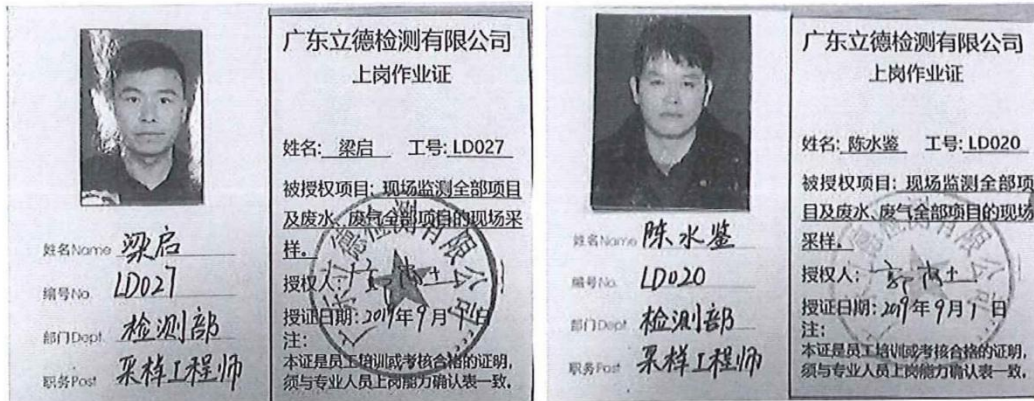 姓名Name 梁启
编号No. LD027
部门Dept. 检测部
职务Post 采样工程师
广东立德检测有限公司
上岗作业证
姓名: 梁启 工号: LD027
被授权项目: 现场监测全部项目
及废水、废气全部项目的现场采
样。
授权人:
授证日期: 2019年9月1日
注:
本证是员工培训或考核合格的证明,
须与专业人员上岗能力确认表一致。
姓名Name 陈水鉴
编号No. LD020
部门Dept. 检测部
职务Post 采样工程师
广东立德检测有限公司
上岗作业证
姓名: 陈水鉴 工号: LD020
被授权项目: 现场监测全部项
目及废水、废气全部项目的现场
采样。
授权人:
授证日期: 2019年9月1日
注:
本证是员工培训或考核合格的证明,
须与专业人员上岗能力确认表一致。